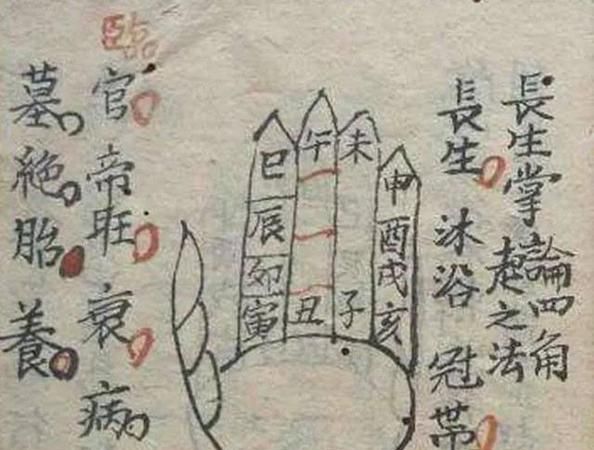 長生掌
論四角
起之法
長生 沐浴 冠帯
臨
官 帝旺 衰 病
墓 絶 胎 養
巳 午 未 申
辰 酉
卯 戌
寅 丑 子 亥